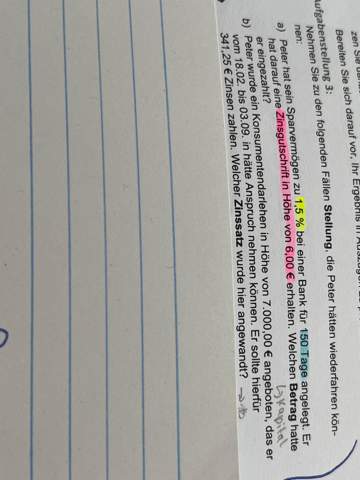 zen Sie
Bereiten Sie sich darauf vor, Ihr Ergebnis in
ufgabenstellung 3:
Nehmen Sie zu den folgenden Fällen Stellung, die Peter hätten wiederfahren kön-
nen:
a) Peter hat sein Sparvermögen zu 1,5 % bei einer Bank für 150 Tage angelegt. Er
hat darauf eine Zinsgutschrift in Höhe von 6,00 € erhalten. Welchen Betrag hatte
er eingezahlt?
↳ Kapital
b) Peter wurde ein Konsumentendarlehen in Höhe von 7.000,00 € angeboten, das er
vom 18.02. bis 03.09. in hätte Anspruch nehmen können. Er sollte hierfür
341,25 € Zinsen zahlen. Welcher Zinssatz wurde hier angewandt?